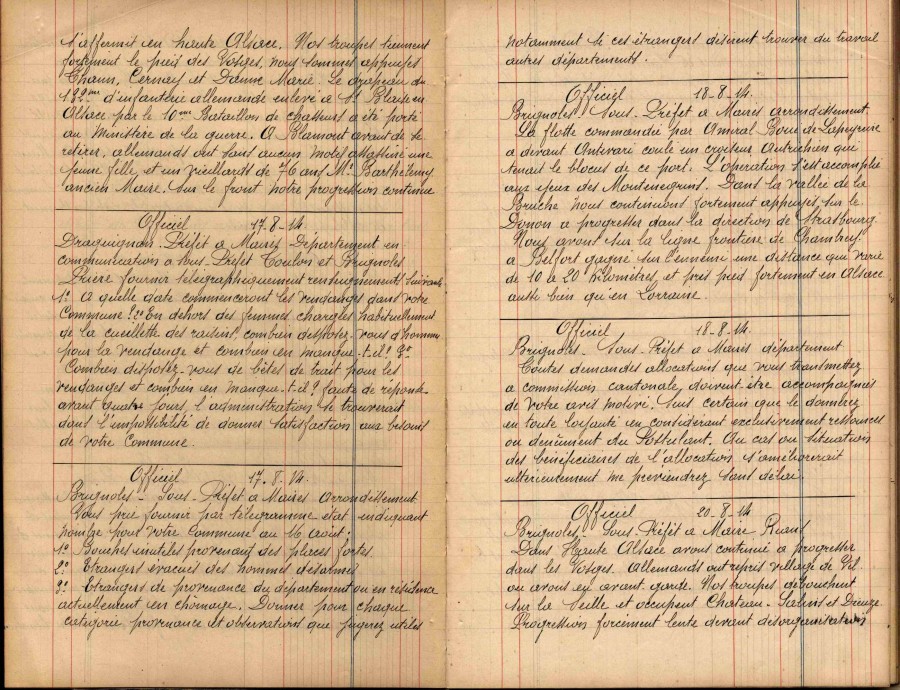 s'affermit en haute Alsace. Nos troupes tiennent
fortement le pied des Vosges, nous sommes appuyés
Thann, Cernay et Danne Marie. Le drapeau du
132ème d'infanterie allemande enlevé à St Blaise en
Alsace par le 10me Bataillon de chasseurs a été porté
au Ministère de la guerre. A Blamont avant de se
retirer, allemands ont sans aucun motif assassiné une
jeune fille, et un vieillards de 76 ans Mr Barthélemy
ancien Maire. Sur le front notre progression continue
Officiel 17.8.14
Draguignan. Préfet à Maires Département en
communication à sous-Préfet Toulon et Brignoles
Prière fournir télégraphiquement renseignements suivants
1° A quelle date commenceront les vendanges dans votre
Commune? 2° En dehors des femmes chargées habituellement
de la cueillette des raisins, combien disposez-vous d'hommes
pour la vendange et combien en manque-t-il? 3°
Combien disposez-vous de bêtes de trait pour les
vendanges et combien en manque-t-il? faute de réponse
avant quatre jours, l'administration se trouverait
dans l'impossibilité de donner satisfaction aux besoins
de votre Commune.
Officiel 17.8.14
Brignoles - Sous-Préfet à Maires arrondissement
Vous prie fournir par télégramme état indiquant
nombre pour votre Commune au 16 août:
1° Bouches inutiles provenant des places fortes
2° Etrangers évacués des hommes désarmés
3° Etrangers de provenance du département ou en résidence
actuellement en chomage. Donner pour chaque
catégorie provenance et observations que jugerez utiles
notamment si ces étrangers désirent trouver du travail
autres départements.
Officiel 18-8-14.
Brignoles Sous-Préfet à Maires arrondissement.
La flotte commandée par Amiral Boué de Lapeyrere
a devant Antivari coulé un croiseur Autrichien qui
tenait le blocus de ce port. L'opération s'est accomplie
aux yeux des Montenegrins. Dans la vallée de la
Bruche nous continuons fortement appuyés sur le
Donon a progresser dans la direction de Strasbourg.
Nous avons sur la ligne frontière de Chambrey
a Belfort gagné sur l'ennemi une distance qui varie
de 10 à 20 kilomètres, et pris pied fortement en Alsace
aussi bien qu'en Lorraine.
Officiel 18-8-14.
Brignoles - Sous-Préfet à Maires département
Toutes demandes allocations que vous transmettez
a commission cantonale, doivent-être accompagnées
de votre avis motivé. Suis certain que le donnerez
en toute loyauté en considérant exclusivement ressources
ou denûment du Postulant. Au cas ou situation
des bénéficiaires de l'allocation s'améliorerait
ultérieurement me préviendrez sans délai.
Officiel 20-8-14
Brignoles - Sous-Préfet à Maire Rians
Dans Haute Alsace avons continué a progresser
dans les Vosges. Allemands ont repris village de Vil
ou avons eu avant-garde. Nos troupes débouchent
sur la Seille et occupent Chateau-Salins et Dieuze
Progression forcément lente devant désorganisation